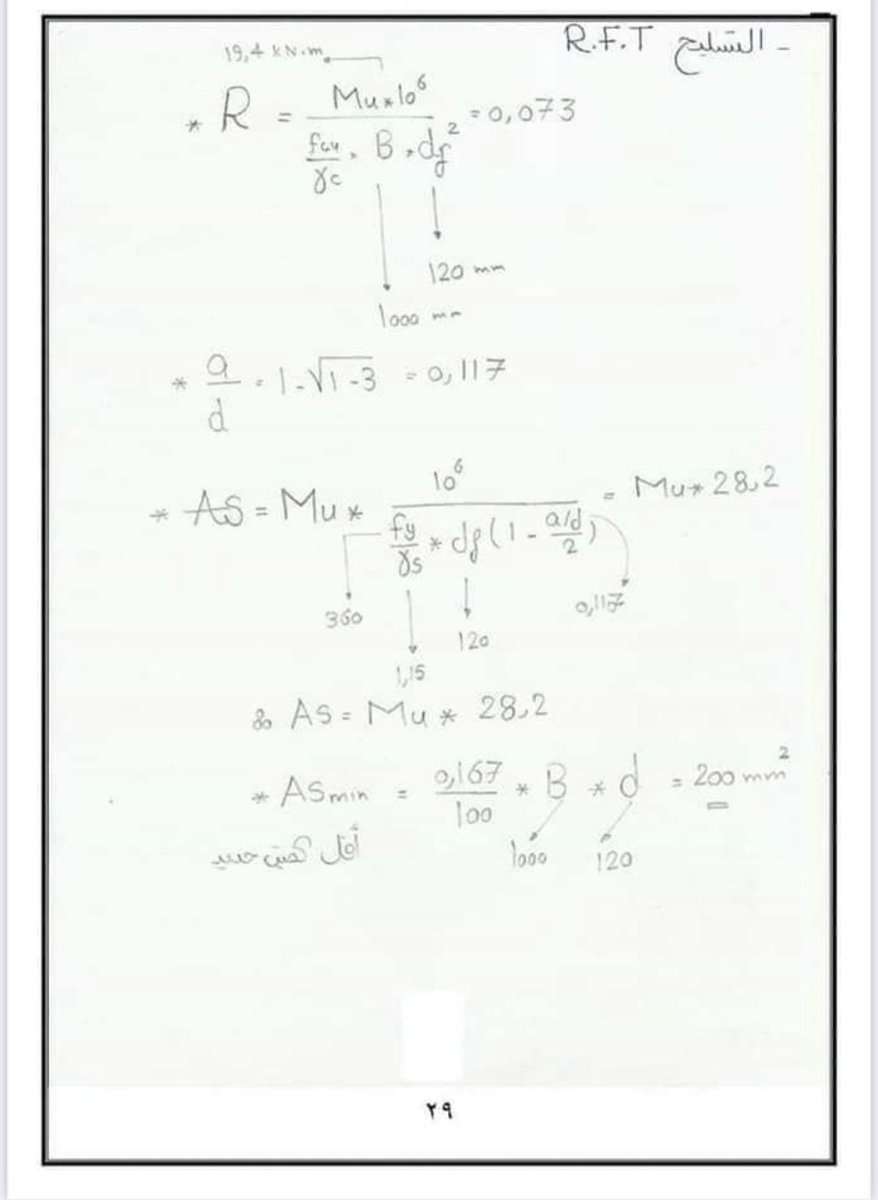 - التسليح R.F.T
19,4 kN.m
* R = Mu*10⁶ / (fcu/γc * B * df²) = 0,073
120 mm
1000 mm
* a/d = 1-√1-3 = 0,117
* AS = Mu * 10⁶ / (fy/γs * df (1 - (a/d)/2)) = Mu* 28,2
360
120
0,117
1,15
∴ AS = Mu * 28,2
* ASmin = 0,167/100 * B * d = 200 mm²
أقل كمية حديد
1000
120
٢٩